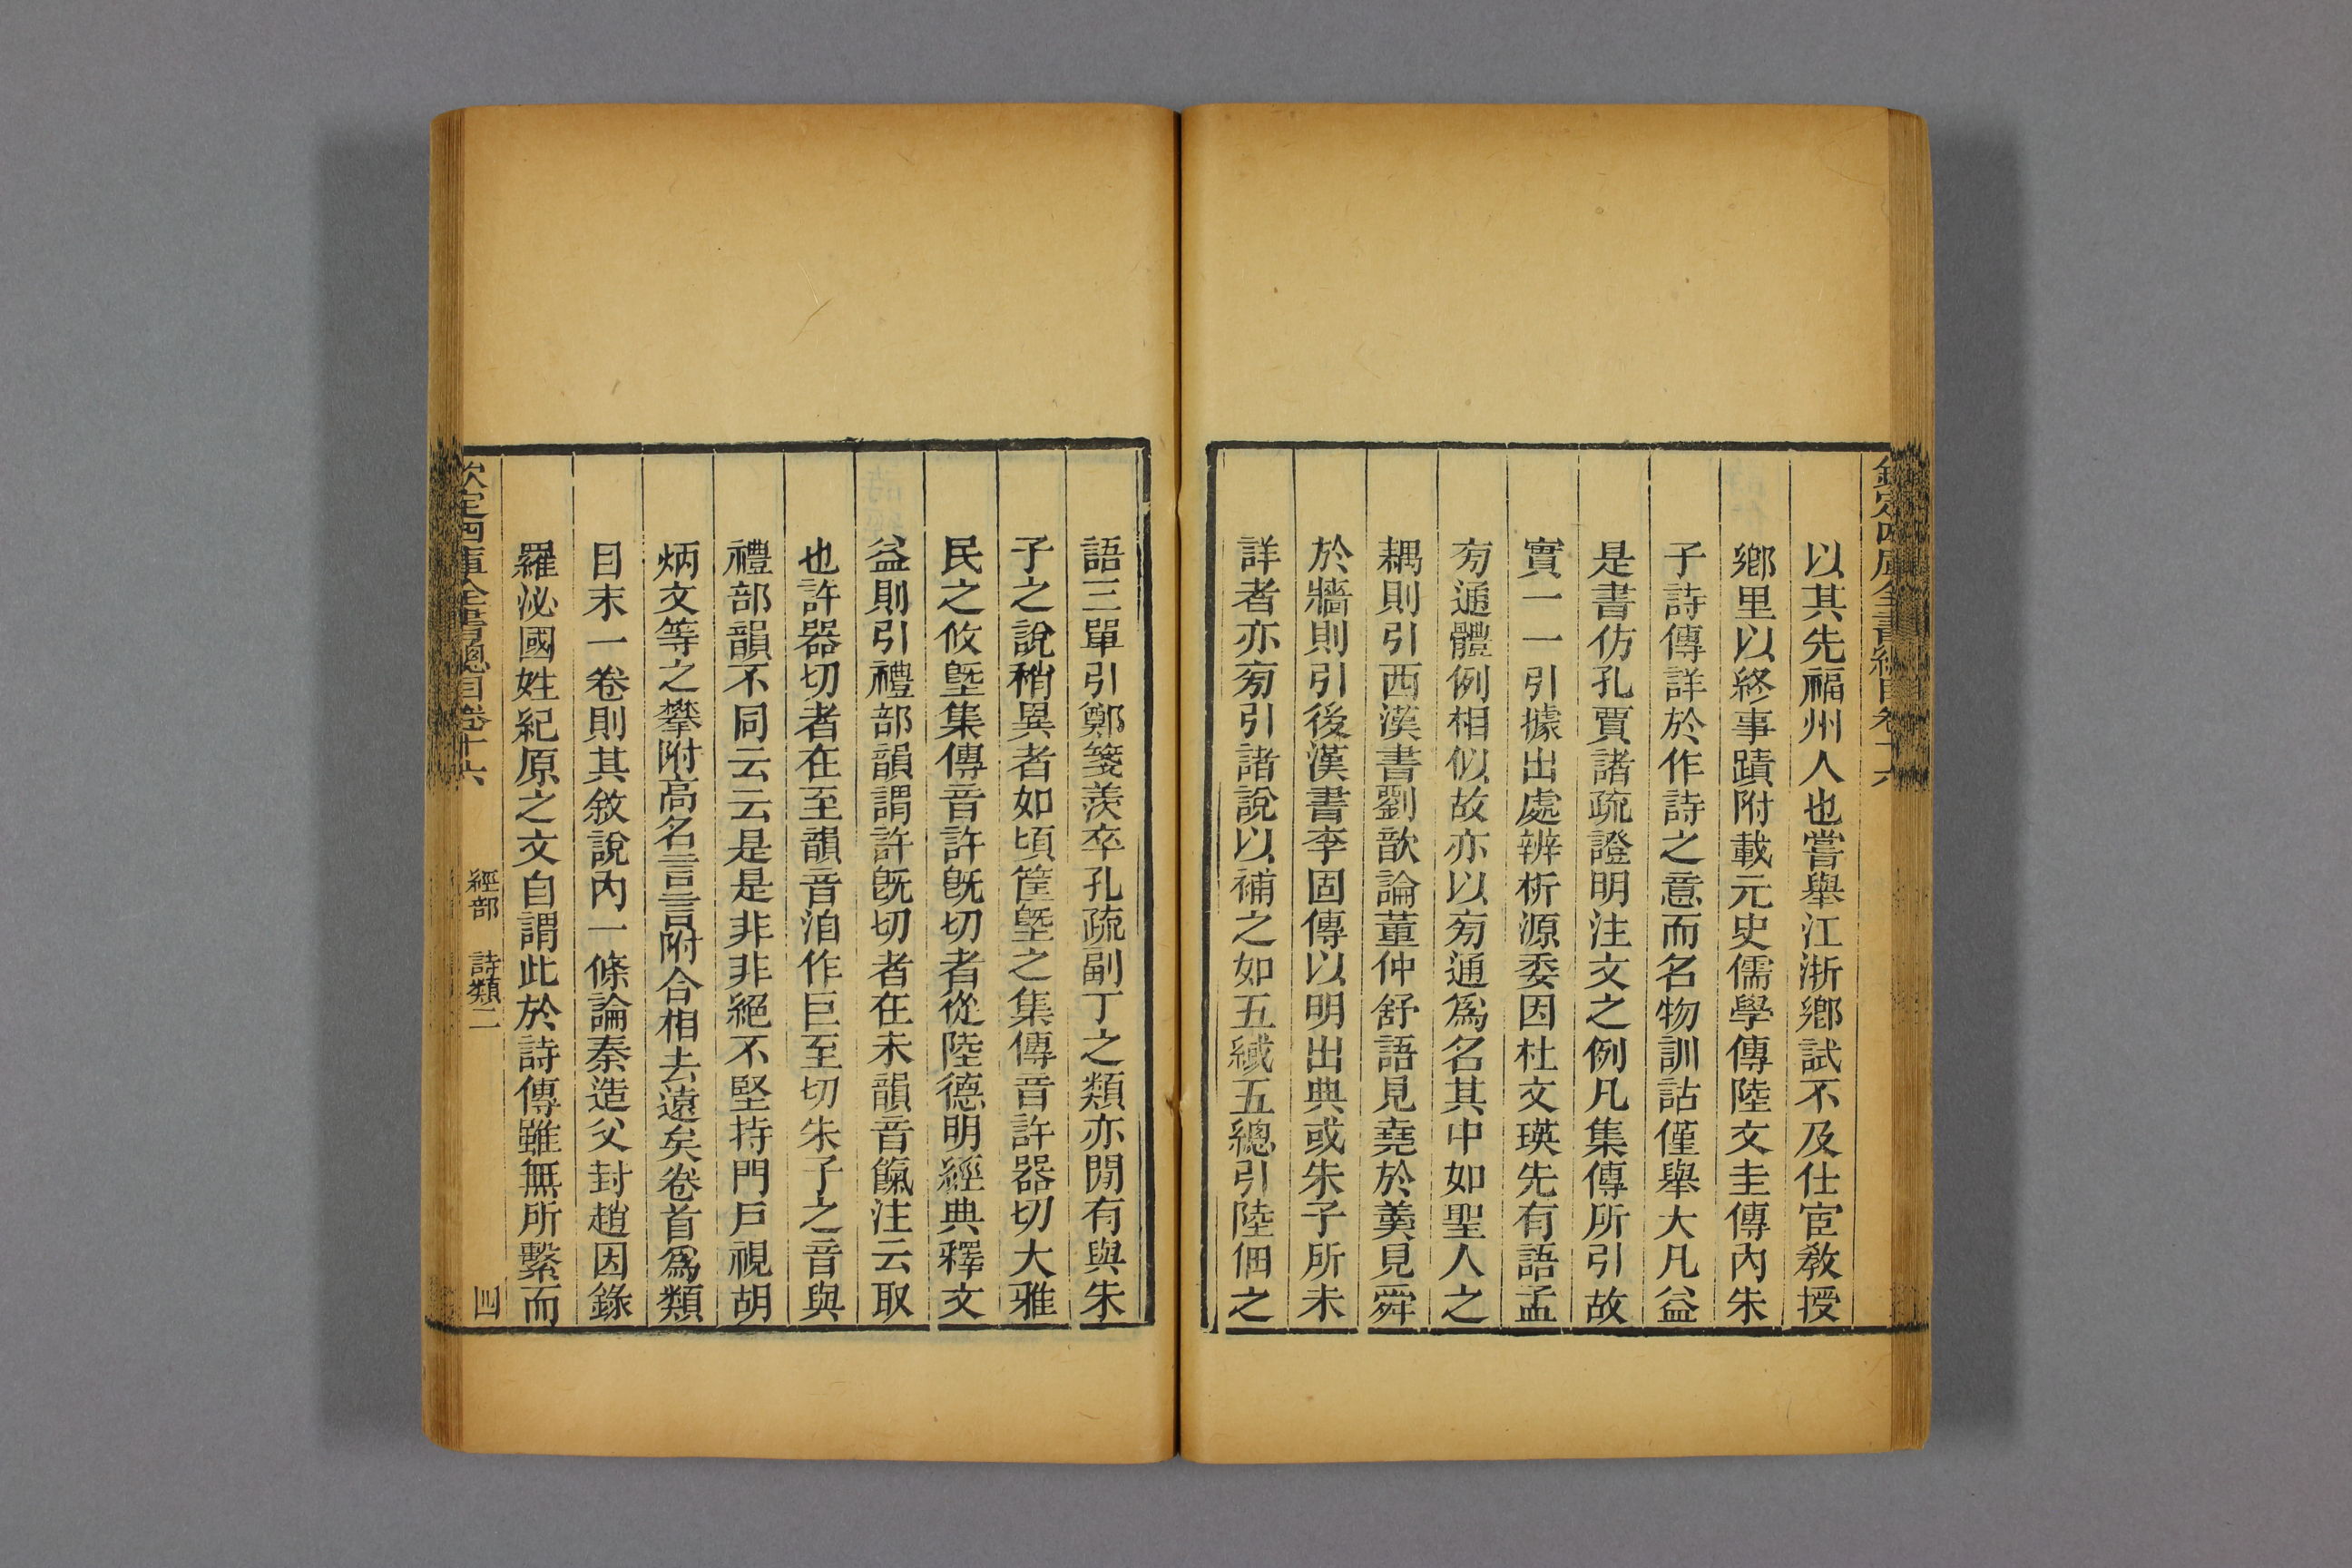 欽定四庫全書總目卷十六
以其先福州人也嘗舉江浙鄉試不及仕宦教授
鄉里以終事蹟附載元史儒學傳陸文圭傳內朱
子詩傳詳於作詩之意而名物訓詁僅舉大凡益
是書仿孔賈諸疏證明注文之例凡集傳所引故
實一一引據出處辨析源委因杜文瑛先有語孟
旁通體例相似故亦以旁通為名其中如聖人之
耦則引西漢書劉歆論董仲舒語見堯於羹見舜
於牆則引後漢書李固傳以明出典或朱子所未
詳者亦旁引諸說以補之如五緎五總引陸佃之
語三單引鄭箋羨卒孔疏副丁之類亦閒有與朱
子之說稍異者如頃筐塈之集傳音許器切大雅
民之攸塈集傳音許旣切者從陸德明經典釋文
益則引禮部韻謂許旣切者在未韻音餼注云取
也許器切者在至韻音洎作巨至切朱子之音與
禮部韻不同云云是是非非絕不堅持門戶視胡
炳文等之攀附高名言言附合相去遠矣卷首為類
目末一卷則其敘說內一條論秦造父封趙因錄
羅泌國姓紀原之文自謂此於詩傳雖無所繫而
欽定四庫全書總目卷十六
經部　詩類二
四